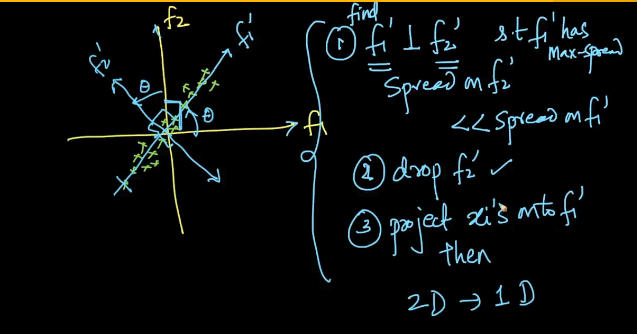 f2
f1'
f2'
θ
θ
f1
find
① f1' ⊥ f2' s.t f1' has
Max-spread
Spread on f2'
<< spread on f1'
② drop f2' ✓
③ project xi's onto f1'
then
2D → 1D